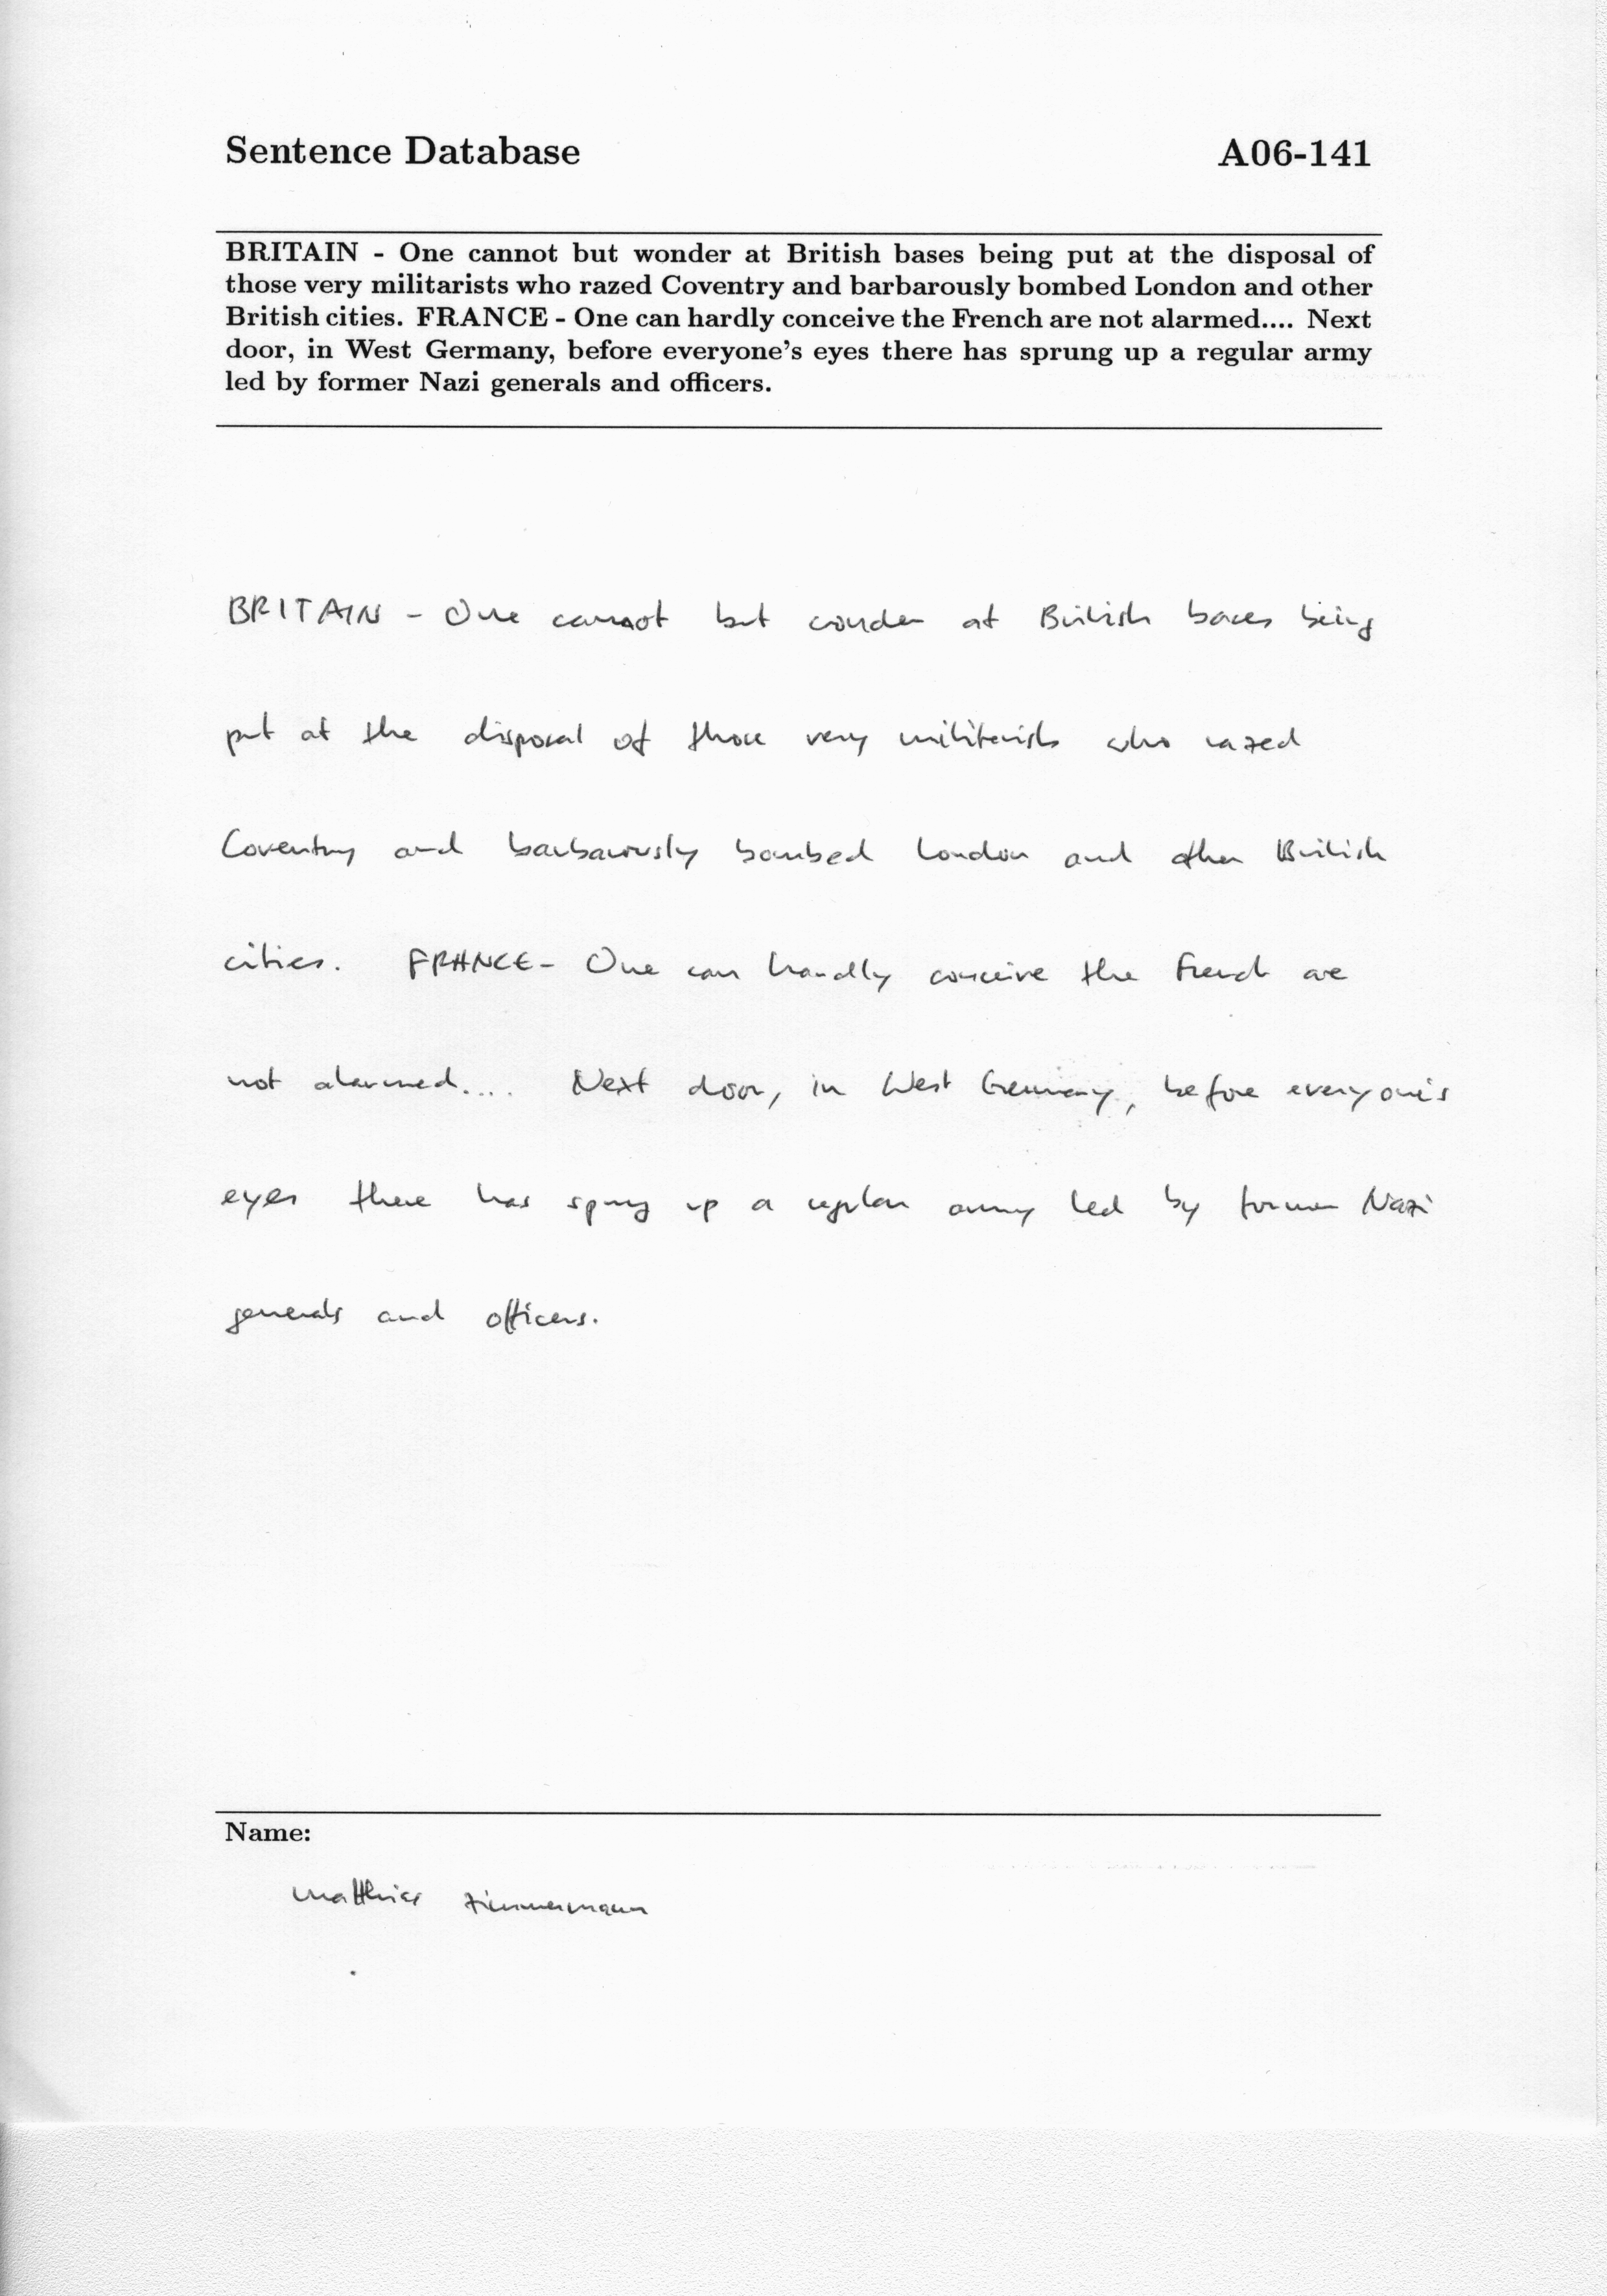 Sentence Database A06-141
BRITAIN - One cannot but wonder at British bases being put at the disposal of
those very militarists who razed Coventry and barbarously bombed London and other
British cities. FRANCE - One can hardly conceive the French are not alarmed.... Next
door, in West Germany, before everyone's eyes there has sprung up a regular army
led by former Nazi generals and officers.
BRITAIN - One cannot but wonder at British bases being
put at the disposal of those very militarists who razed
Coventry and barbarously bombed London and other British
cities. FRANCE - One can hardly conceive the French are
not alarmed.... Next door, in West Germany, before everyone's
eyes there has sprung up a regular army led by former Nazi
generals and officers.
Name:
Matthias Zimmermann